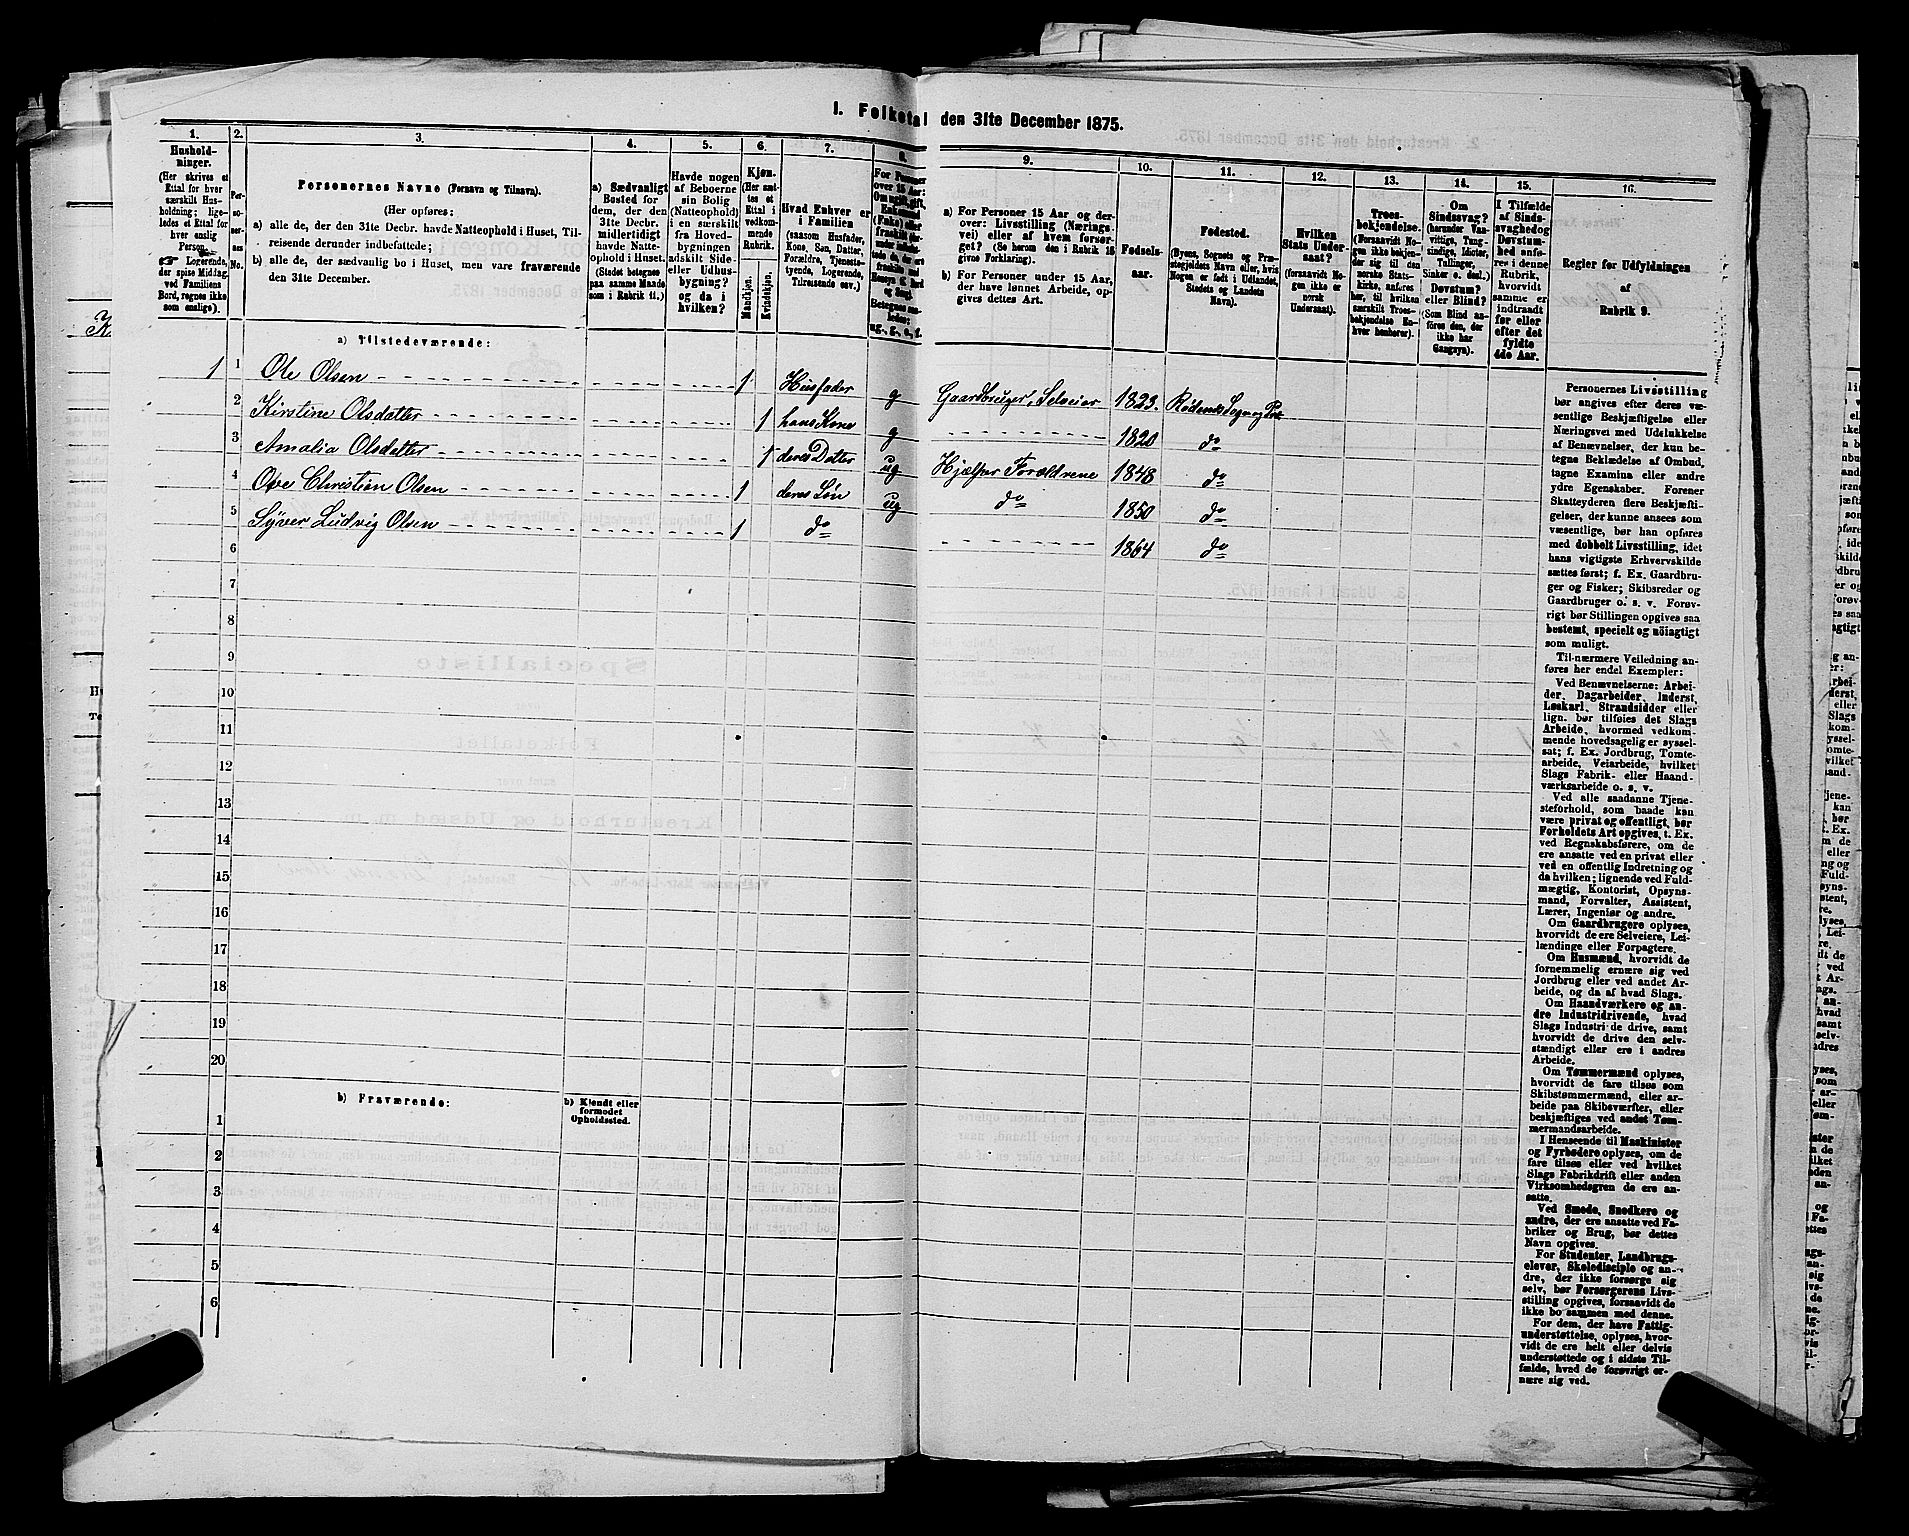 I. Folketal den 31te December 1875.
1. 2. 3. 4. 5. 6. 7. 8. 9. 10. 11. 12. 13. 14. 15. 16.
Husholdninger.
(Her skrives et
Ettal for hver
særskilt Husholdning; ligeledes et Ettal for
hver enslig
Person.
Logerende,
der spise Middag
ved Familiens
Bord, regnes ikke
som enslige).
Personernes No.
Personernes Navne (Fornavn og Tilnavn).
(Her opføres:
a) alle de, der den 31te Decbr. havde Natteophold i Huset, Tilreisende derunder indbefattede;
b) alle de, der sædvanlig bo i Huset, men vare fraværende
den 31te December.
a) Sædvanligt
Bosted for
dem, der den
31te Decbr.
midlertidigt
havde Natteophold i Huset.
(Stedet betegnes
paa samme Maade
som i Rubrik 11.)
Havde nogen
af Beboerne
sin Bolig
(Natteophold)
i en særskilt
fra Hovedbygningen
adskilt Side-
eller Udhusbygning?
og da i
hvilken?
Kjøn.
(Her sættes et
Ettal i
vedkommende
Rubrik.
Mandkjøn.
Kvindekjøn.
Hvad Enhver er
i Familien
(saasom Husfader,
Kone, Søn, Datter,
Forældre, Tjenestetyende, Logerende,
Tilreisende osv.)
For Personer
over 15 Aar:
ug., g., e., f.
a) For Personer 15 Aar og derover: Livsstilling (Næringsvei) eller af hvem forsørget? (Se herom den i Rubrik 16
givne Forklaring).
b) For Personer under 15 Aar,
der have lønnet Arbeide, opgives dettes Art.
Fødselsaar.
Fødested.
(Byens, Sognets og Præstegjeldets Navn eller, hvis
Nogen er født i Udlandet,
Stedets og Landets
Navn).
Hvilken
Stats Undersaat?
(forsaavidt Nogen ikke er
norsk
Undersaat).
Troesbekjendelse.
(Forsaavidt Nogen ikke bekjender sig til den
norske Statskirke, anføres
her, til hvilken
særskilt Troesbekjendelse Enhver henhører).
Om
Sindssvag?
(herunder Vanvittige, Tungsindige, Idioter,
Tullinger,
Sinker o. desl.)
Døvstum?
eller Blind?
(Som Blind anføres den, der
ikke har
Gangsyn).
I Tilfælde
af Sindssvaghed og
Døvstumhed anføres i denne
Rubrik,
hvorvidt
samme er
indtraadt
før eller
efter det
fyldte
4de Aar.
Regler for Udfyldningen
af
Rubrik 9.
a) Tilstedeværende:
1 1 Ole Olsen 1 Husfader g Gaardbruger, Selveier 1823.
2 Kirstine Olsdatter 1 hans Kone g 1820 do
3 Amalia Olsdatter 1 deres Datter ug Hjælper Forældrene 1848 do
4 Ove Christian Olsen 1 deres Søn ug do 1850 do
5 Syver Ludvig Olsen 1 do 1864 do
6
7
8
9
10
11
12
13
14
15
16
17
18
19
20
b) Fraværende:
b) Kjendt eller
formodet
Opholdssted.
1
2
3
4
5
6
Personernes Livsstilling
bør angives efter deres væsentlige Beskjæftigelse eller
Næringsvei med Udelukkelse
af Benævnelser, der kun betegne Beklædelse af Ombud,
tagne Examina eller andre
ydre Egenskaber. Forener
Skatteyderen flere Beskjæftigelser, der kunne ansees som
væsentlige, bør han opføres
med dobbelt Livsstilling, idet
hans vigtigste Erhvervskilde
sættes først; f. Ex. Gaardbruger og Fisker; Skibsreder og
Gaardbruger o. s. v. Forøvrigt bør Stillingen opgives saa
bestemt, specielt og nöiagtigt
som muligt.
Til nærmere Veiledning anføres her endel Exempler:
Ved Benævnelserne: Arbeider, Dagarbeider, Inderst,
Løskarl, Strandsidder eller
lign. bør tilføies det Slags
Arbeide, hvormed vedkommende hovedsagelig er sysselsat; f. Ex. Jordbrug, Tomtearbeide, Veiarbeide, hvilket
Slags Fabrik- eller Haandværksarbeide o. s. v.
Ved alle saadanne Tjenesteforhold, som baade kan
være privat og offentligt, bør
Forholdets Art opgives, t. Ex.
ved Regnskabsførere, om de
ere ansatte ved en privat eller
ved en offentlig Indretning og
da hvilken; lignende ved Fuldmægtig, Kontorist, Opsynsmand, Forvalter, Assistent,
Lærer, Ingeniør og andre.
Om Gaardbrugere oplyses,
hvorvidt de ere Selveiere, Leilændinge eller Forpagtere.
Om Husmænd, hvorvidt de
fornemmelig ernære sig ved
Jordbrug eller ved andet Arbeide, og da af hvad Slags.
Om Haandværkere og andre Industridrivende, hvad
Slags Industri de drive, samt
hvorvidt de drive den selvstændigt eller ere i andres
Arbeide.
Om Tømmermænd oplyses,
hvorvidt de fare tilsøs som
Skibstømmermænd, eller arbeide paa Skibsværfter, eller
beskjæftiges ved andet Tømmermandsarbeide.
I Henseende til Maskinister
og Fyrbødere oplyses, om de
fare tilsøs eller ved hvilket
Slags Fabrikdrift eller anden
Virksomhedsgren de ere ansatte.
Ved Smede, Snedkere og
andre, der ere ansatte ved Fabriker og Brug, bør dettes
Navn opgives.
For Studenter, Landbrugselever, Skoledisciple og andre, der ikke forsørge sig
selv, bør Forsørgerens Livsstilling opgives, forsaavidt de
ikke bo sammen med denne.
For dem, der have Fattigunderstøttelse, oplyses, hvorvidt de ere helt eller delvis
understøttede og i sidste Tilfælde, hvad de forøvrigt ernære sig ved.